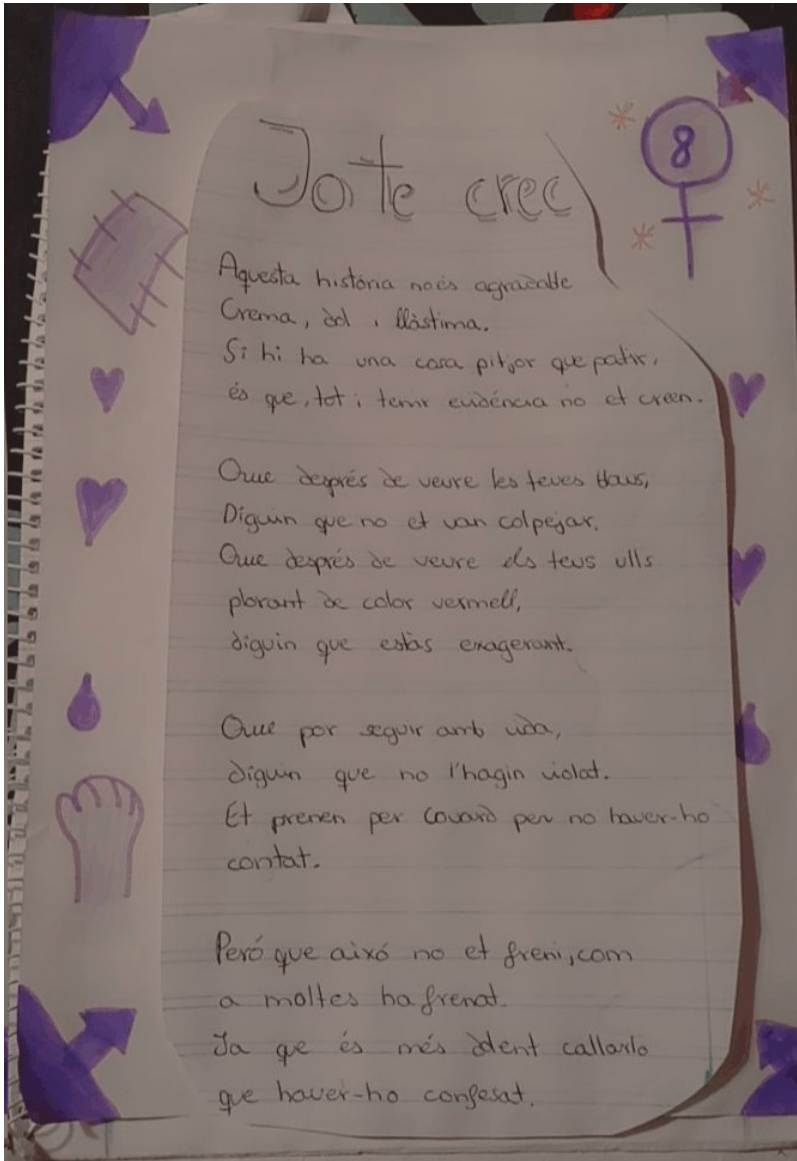 Jo te crec
8
Aquesta história noés agradable
Crema, dol i llàstima.
Si hi ha una cosa pitjor que patir,
és que, tot i tenir evidéncia no et creen.
Que després de veure les teves blaus,
Diguin que no et van colpejar.
Que després de veure els teus ulls
plorant de color vermell,
diguin que estàs exagerant.
Que por seguir amb vida,
diguin que no l'hagin violat.
Et prenen per covard per no haver-ho
contat.
Peró que aixó no et freni, com
a moltes ha frenat.
Ja que és més dolent callarlo
que haver-ho confesat.